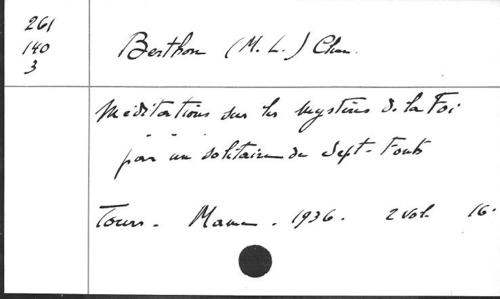 261
140
3
Berthon (M. L.) Chan.
Méditations sur les mystères de la Foi
par un solitaire de Sept-Fonts
Tours. Mame. 1936. 2 vol. 16.